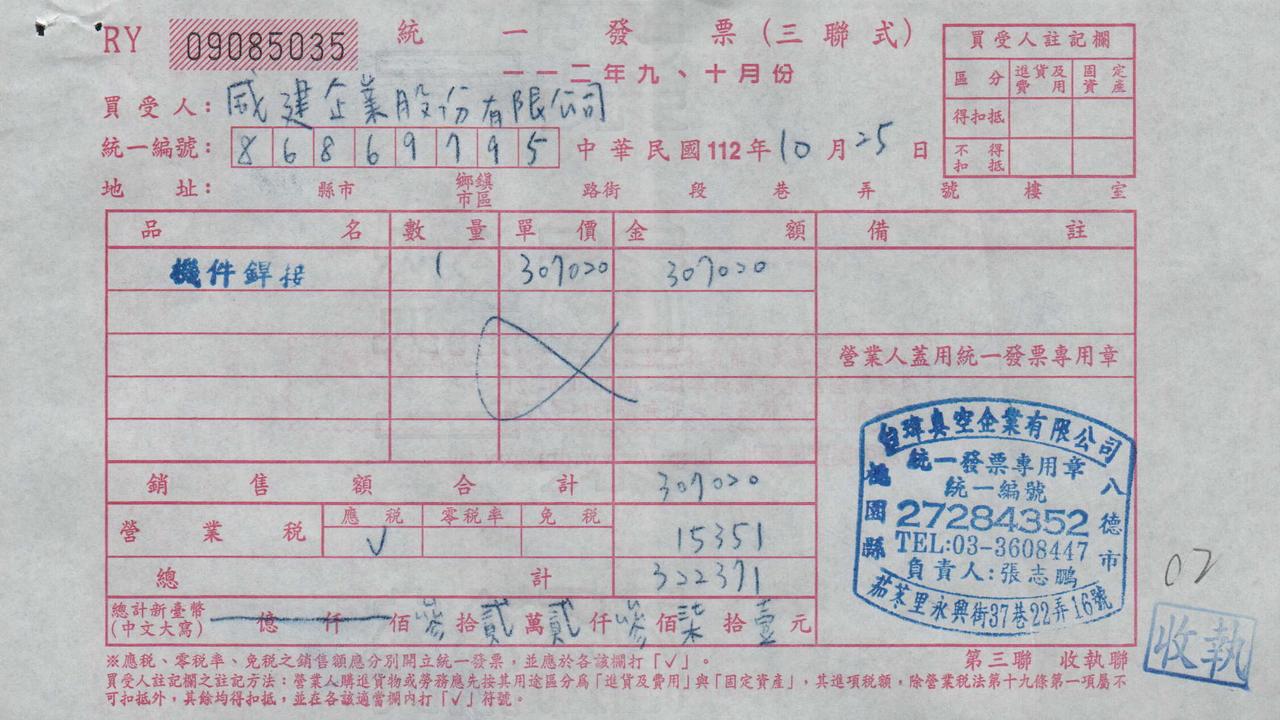 RY 09085035 統一發票(三聯式)
一一二年九、十月份
買受人: 威建企業股份有限公司
統一編號: 86869795 中華民國112年10月25日
地址: 縣市 鄉鎮市區 路街 段 巷 弄 號 樓 室
買受人註記欄
區分 進貨及費用 固定資產
得扣抵
不得扣抵
品名 數量 單價 金額 備註
機件銲接 1 307020 307020
營業人蓋用統一發票專用章
銷售額合計 307020
營業稅 應稅 零稅率 免稅
√ 15351
總計 322371
總計新臺幣(中文大寫) 億 仟 佰 參 拾 貳 萬 貳 仟 參 佰 柒 拾 壹 元
瑋真空企業有限公司
統一發票專用章
統一編號
27284352
TEL:03-3608447
負責人:張志鵬
桃園縣 八德市
茄苳里永興街37巷22弄16號
02
收執
※應稅、零稅率、免稅之銷售額應分別開立統一發票,並應於各該欄打「√」。
第三聯 收執聯
買受人註記欄之註記方法:營業人購進貨物或勞務應先按其用途區分為「進貨及費用」與「固定資產」,其進項稅額,除營業稅法第十九條第一項屬不
可扣抵外,其餘均得扣抵,並在各該適當欄內打「√」符號。